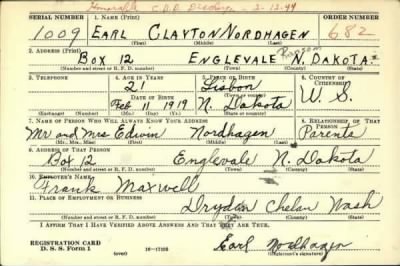 Honorable C.D.D. Discharge - 2-12-44
SERIAL NUMBER 1. NAME (Print) ORDER NUMBER
1009 EARL CLAYTON NORDHAGEN 682
(First) (Middle) (Last)
2. ADDRESS (Print)
Ransom
BOX 12 ENGLEVALE N. DAKOTA.
(Number and street or R. F. D. number) (Town) (County) (State)
3. TELEPHONE 4. AGE IN YEARS 5. PLACE OF BIRTH 6. COUNTRY OF CITIZENSHIP
21 Lisbon
DATE OF BIRTH (Town or county) U. S.
Feb 11 1919 N. Dakota
(Exchange) (Number) (Mo.) (Day) (Yr.) (State or country)
7. NAME OF PERSON WHO WILL ALWAYS KNOW YOUR ADDRESS 8. RELATIONSHIP OF THAT PERSON
Mr and Mrs Edwin Nordhagen Parents
(Mr., Mrs., Miss) (First) (Middle) (Last)
9. ADDRESS OF THAT PERSON
Box 12 Englevale N. Dakota
(Number and street or R. F. D. number) (Town) (County) (State)
10. EMPLOYER'S NAME
Frank Maxwell
11. PLACE OF EMPLOYMENT OR BUSINESS
Dryden Chelan Wash
(Number and street or R. F. D. number) (Town) (County) (State)
I AFFIRM THAT I HAVE VERIFIED ABOVE ANSWERS AND THAT THEY ARE TRUE.
REGISTRATION CARD
D. S. S. Form 1 (over) 16-17105 Earl Nordhagen
(Registrant's signature)